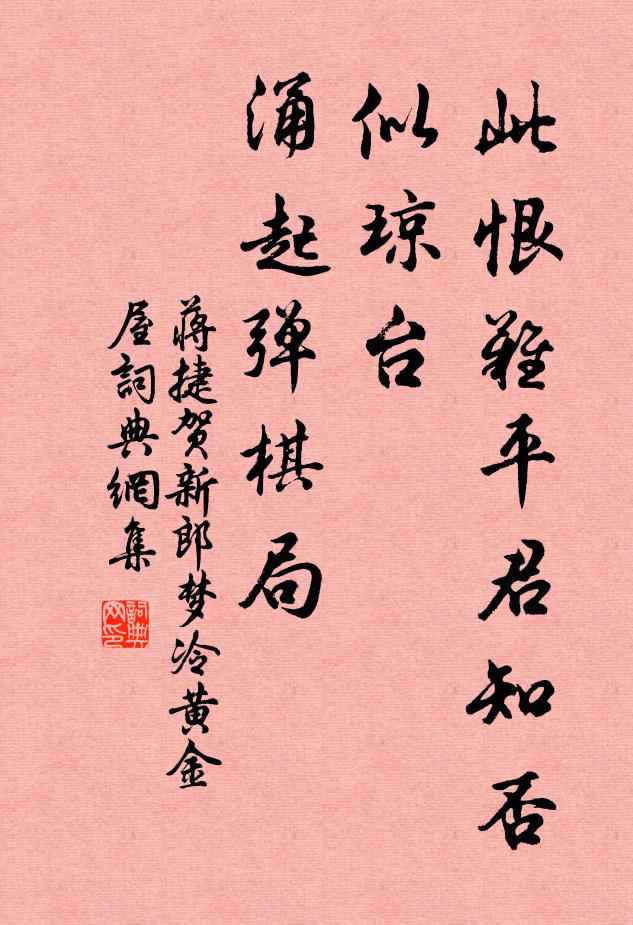 此恨难平君知否
似琼台
涌起弹棋局
蒋捷贺新郎梦冷黄金
屋詞典網集
詞典
网印